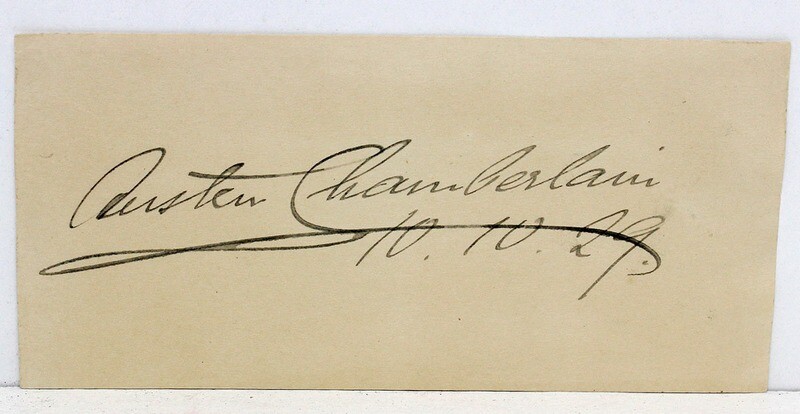 Austen Chamberlain
10. 10. 29.